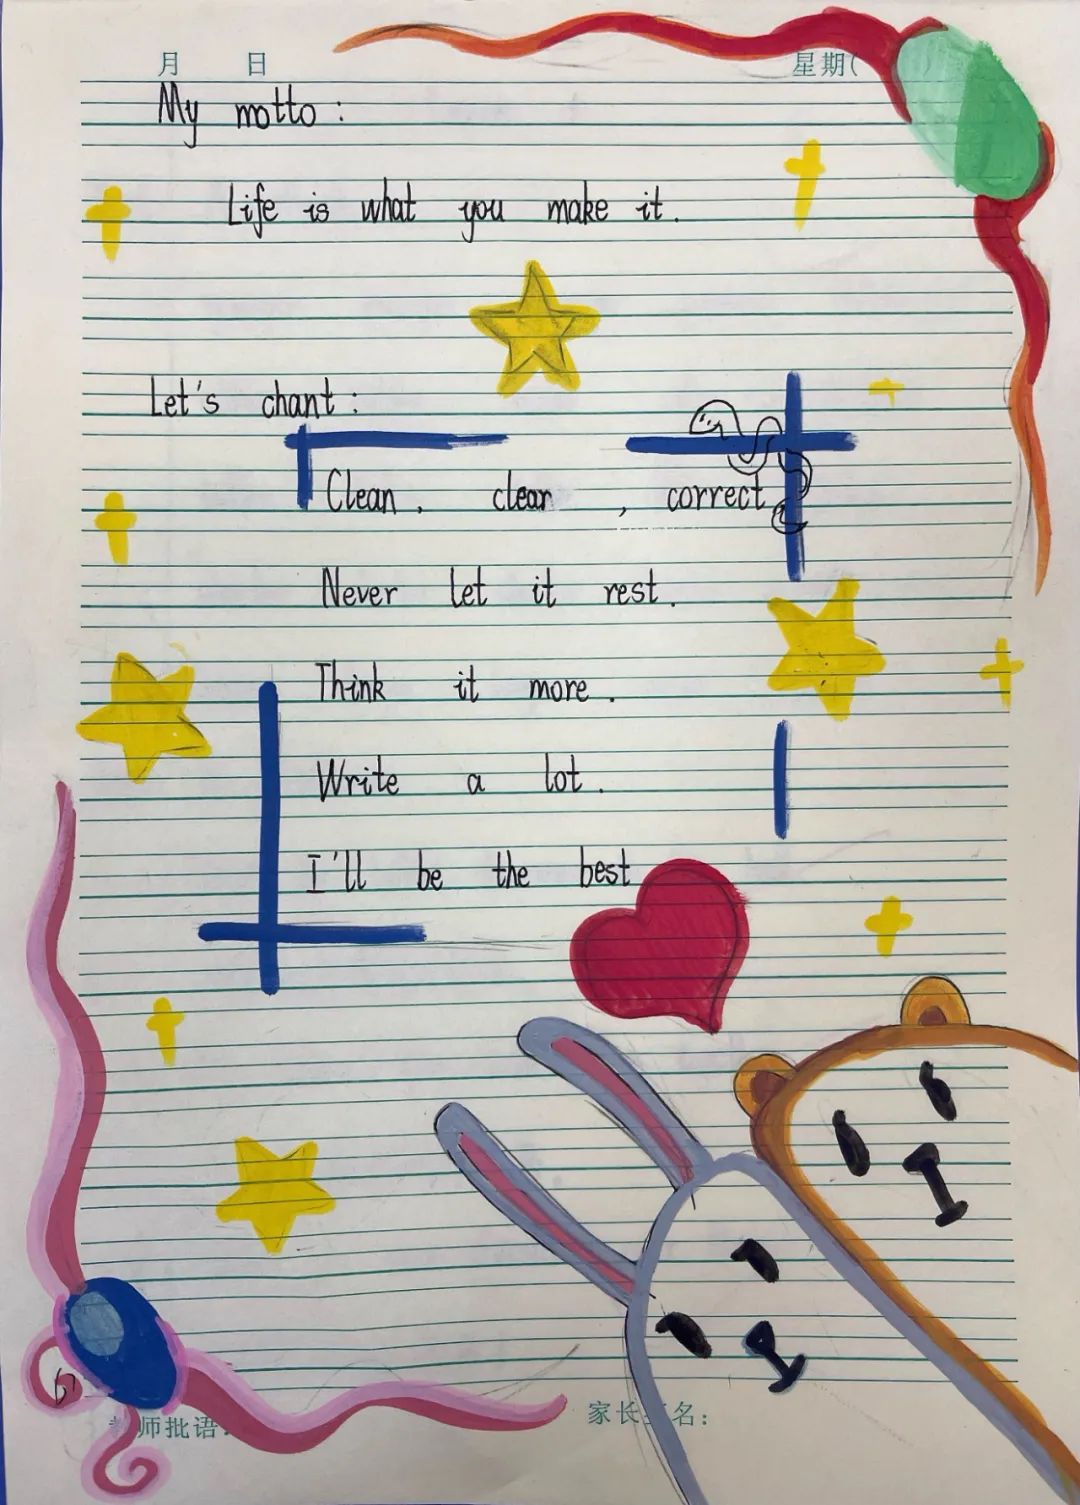 月 日 星期(
My motto :
Life is what you make it.
Let's chant :
Clean, clear , correct
Never let it rest.
Think it more.
Write a lot.
I'll be the best
师批语:
家长 名: